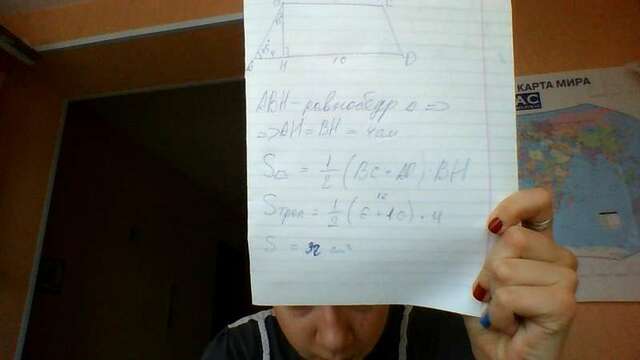 A H 10 D
ABH - равнобедр Δ =>
=> AH = BH = 4 см
S = 1/2 (BC + AD) · BH
16
Sтрап = 1/2 (6 + 10) · 4
S = 32 см²
КАРТА МИРА